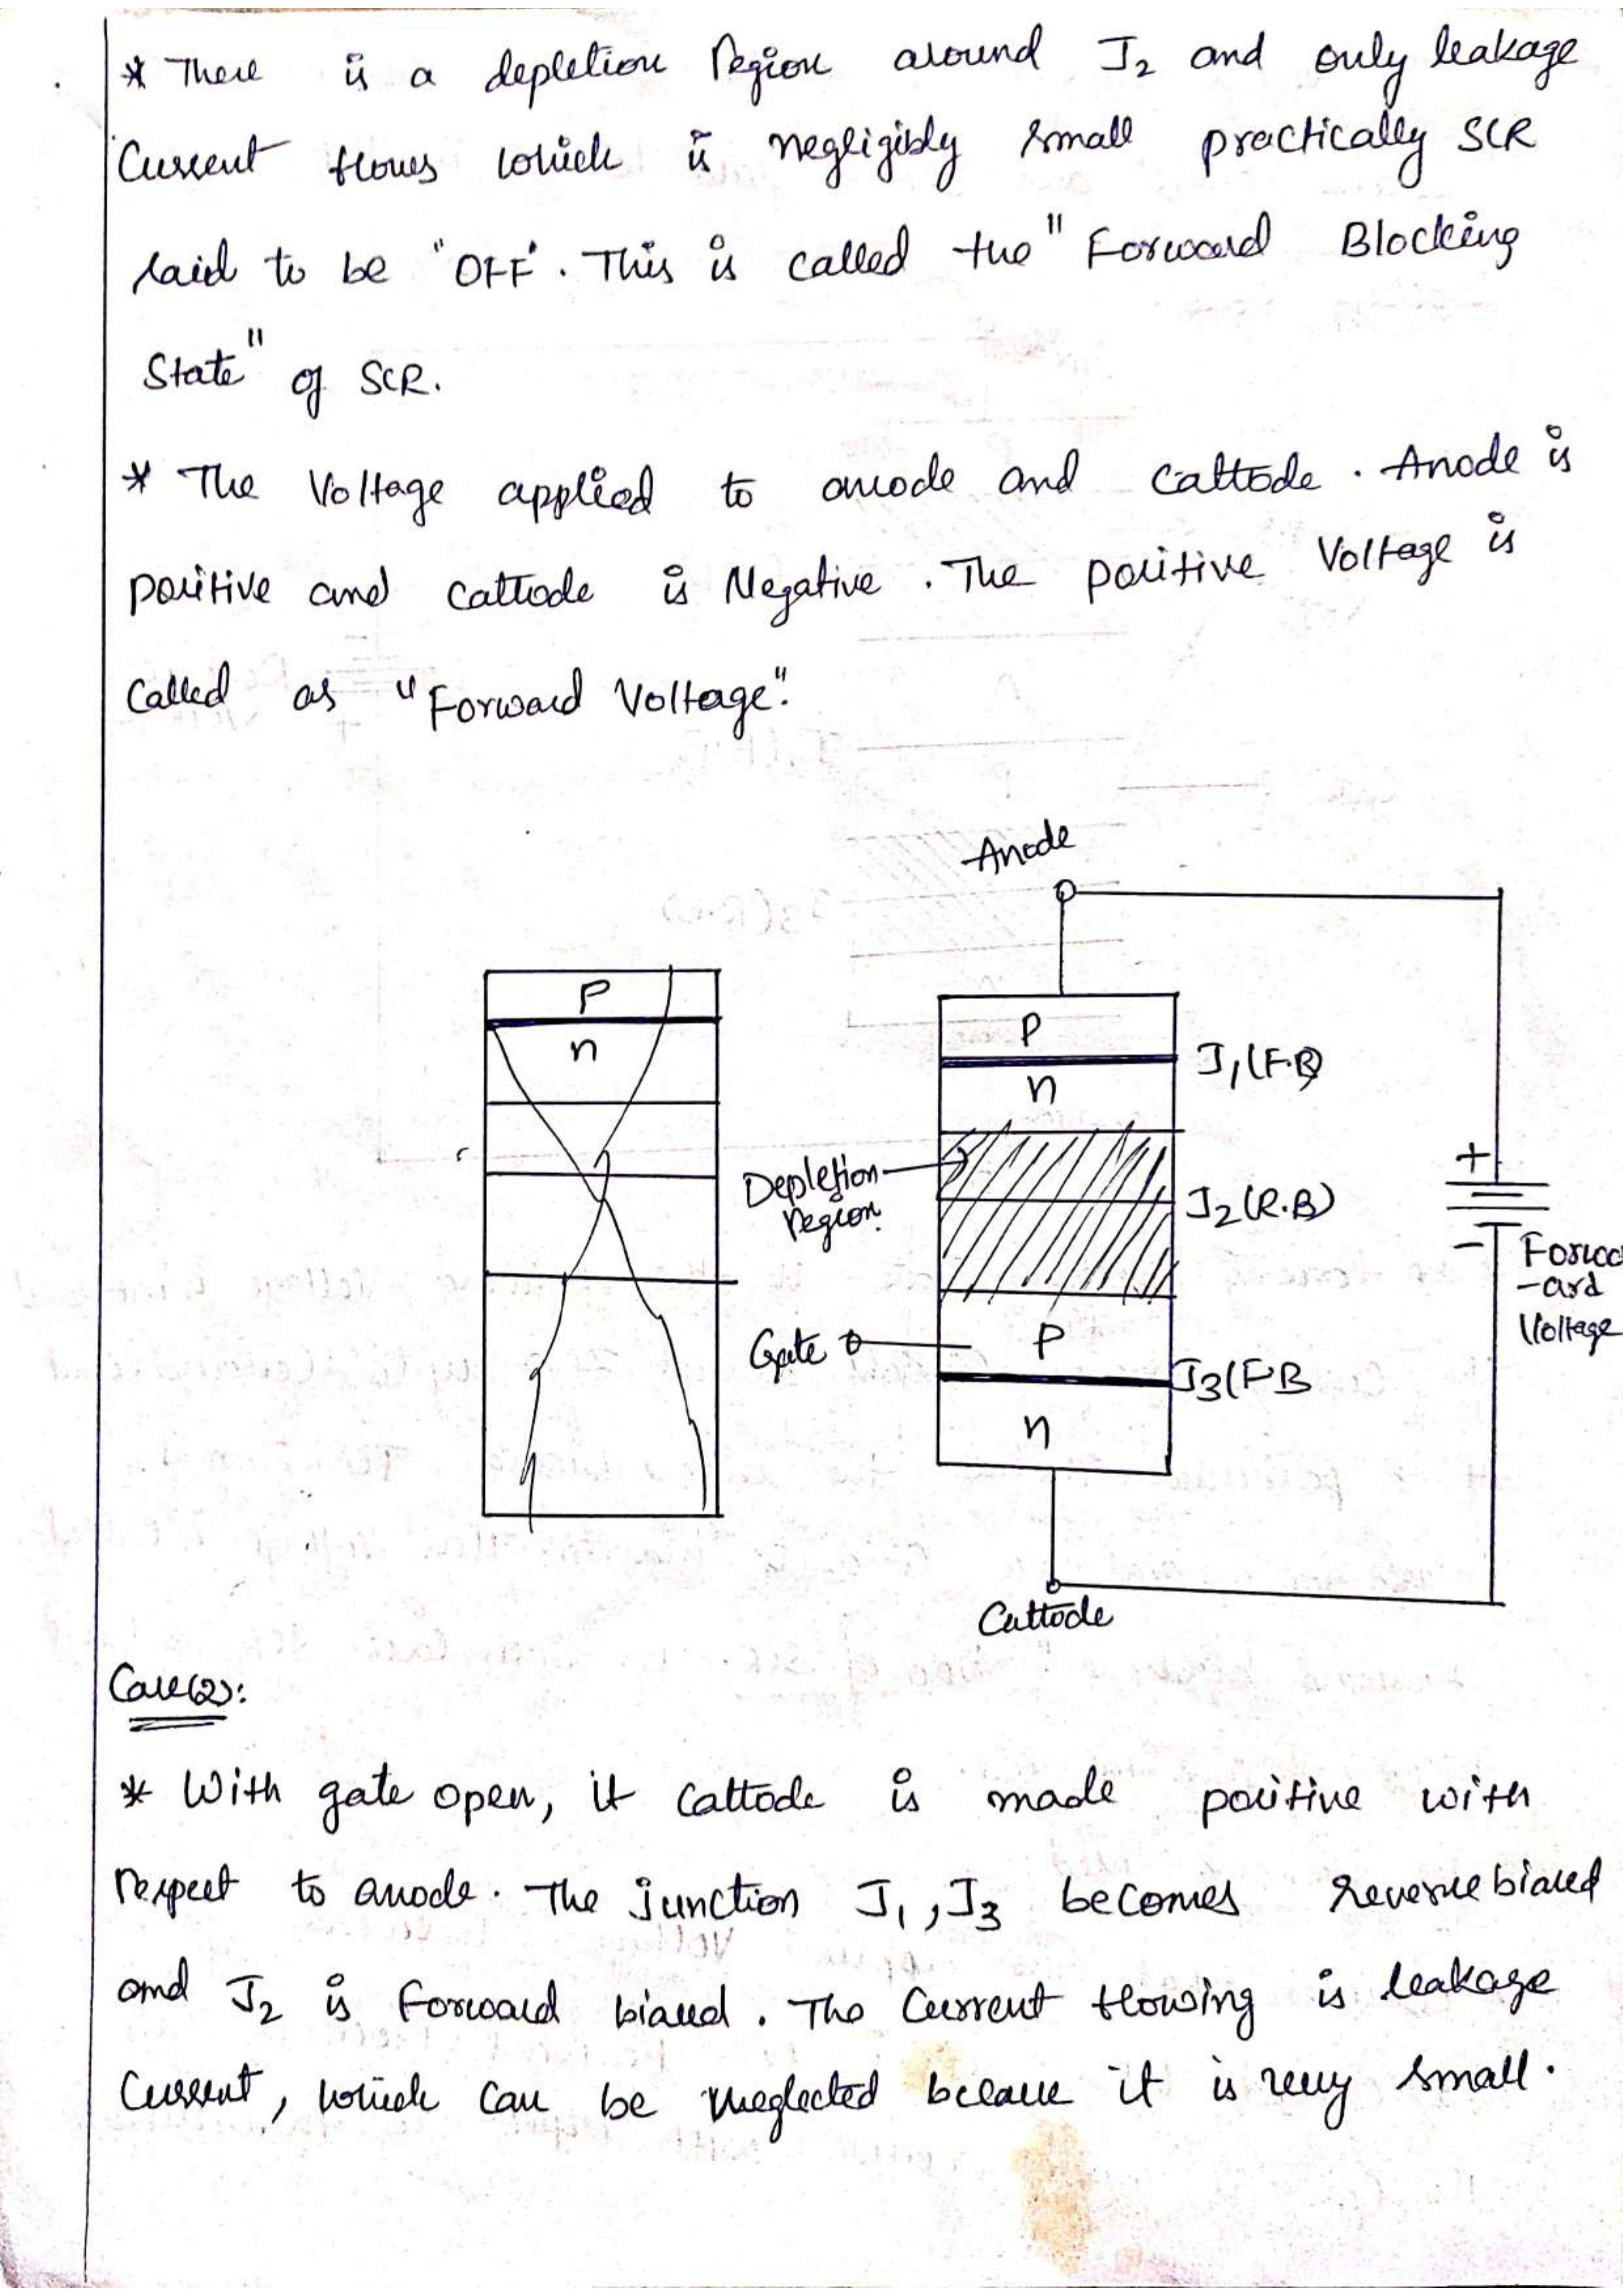 * There is a depletion Region around J2 and only leakage
Current flows which is negligibly small practically SCR
said to be "OFF". This is called the "Forward Blocking
State" of SCR.
* The Voltage applied to anode and Cattode . Anode is
positive and Cattode is Negative . The positive Voltage is
Called as "Forward Voltage".
Anode
P
n
P
n
J1(F.B)
Depletion
region
J2(R.B)
+
-
Forwa
-ard
Voltage
Gate
P
J3(F.B
n
Cattode
Case(2):
* With gate open, if Cattode is made positive with
respect to anode. The junction J1, J3 becomes reverse biased
and J2 is forward biased . The Current flowing is leakage
Current, which can be neglected because it is very small.